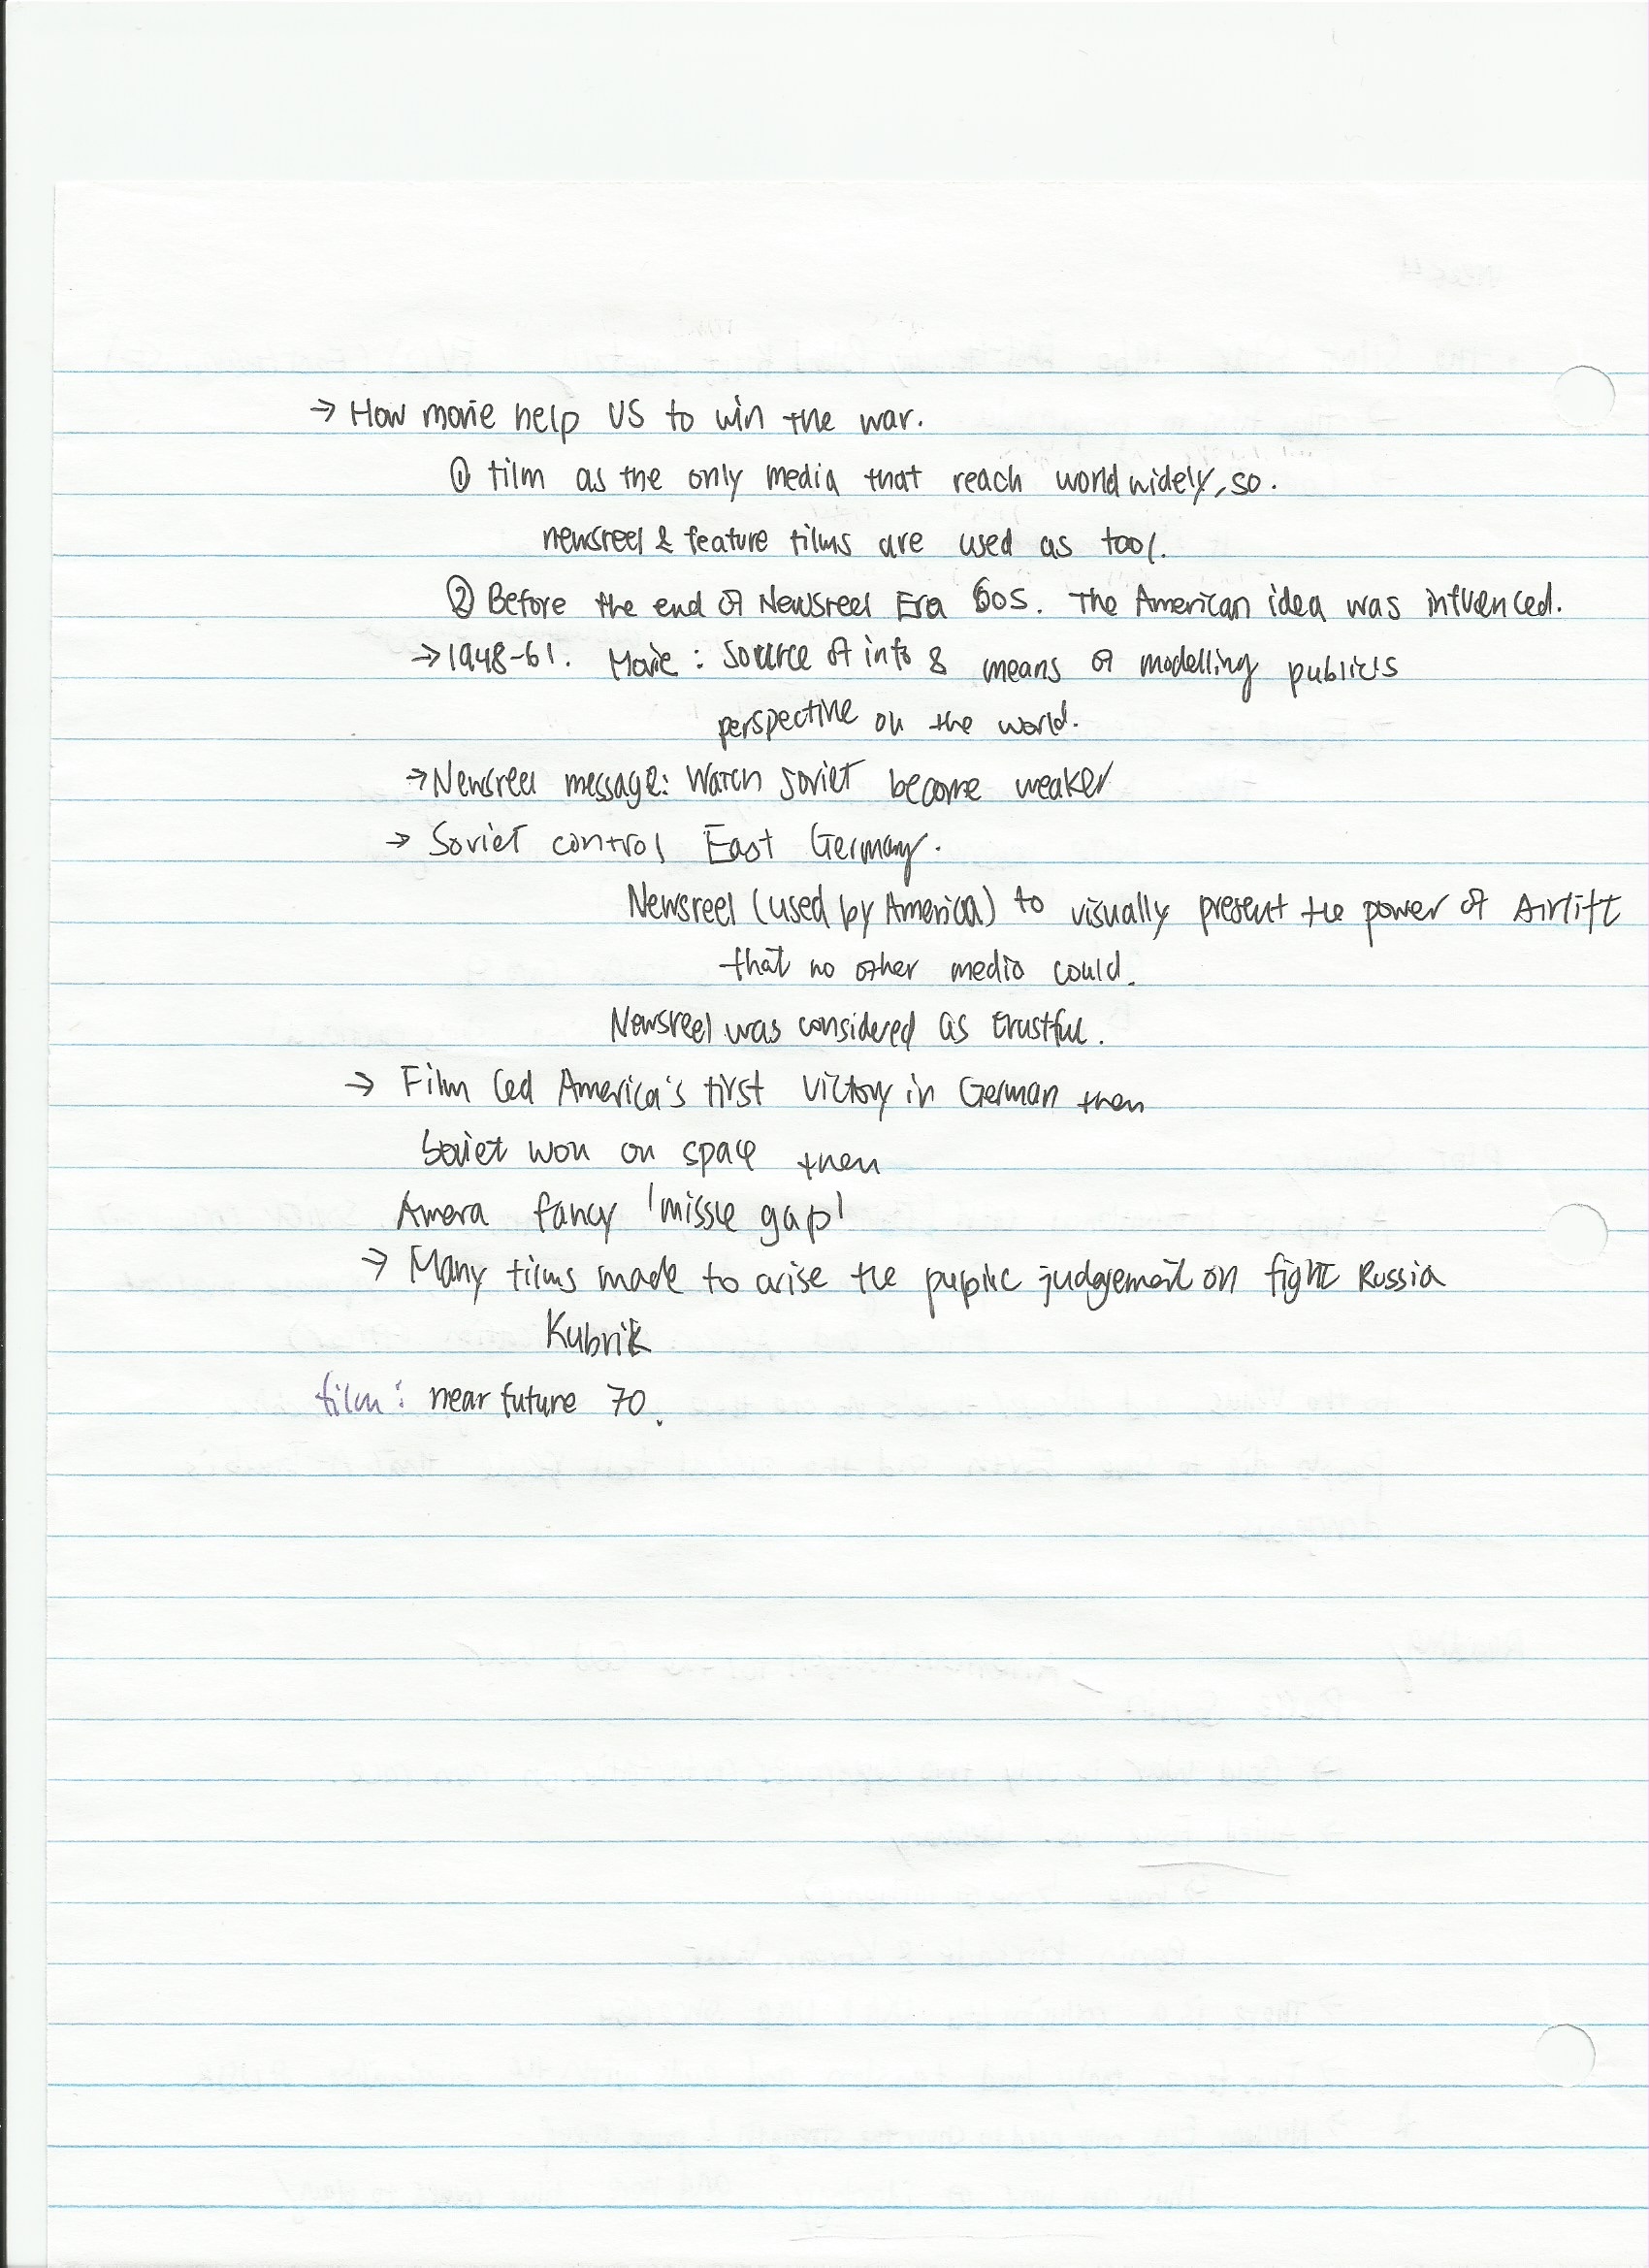 → How movie help US to win the war.
① film as the only media that reach world widely, so.
newsreel & feature films are used as tool.
② Before the end of Newsreel Era 60s. The American idea was influenced.
→ 1948-61. Movie : Source of info & means of modelling public's
perspective on the world.
→ Newsreel message: Watch Soviet become weaker
→ Soviet control East Germany.
Newsreel (used by America) to visually present the power of Airlift
that no other media could.
Newsreel was considered as trustful.
→ Film led America's first victory in German then
Soviet won on space then
Amera fancy 'missle gap'
→ Many films made to arise the public judgement on fight Russia
Kubrik
film: near future 70.